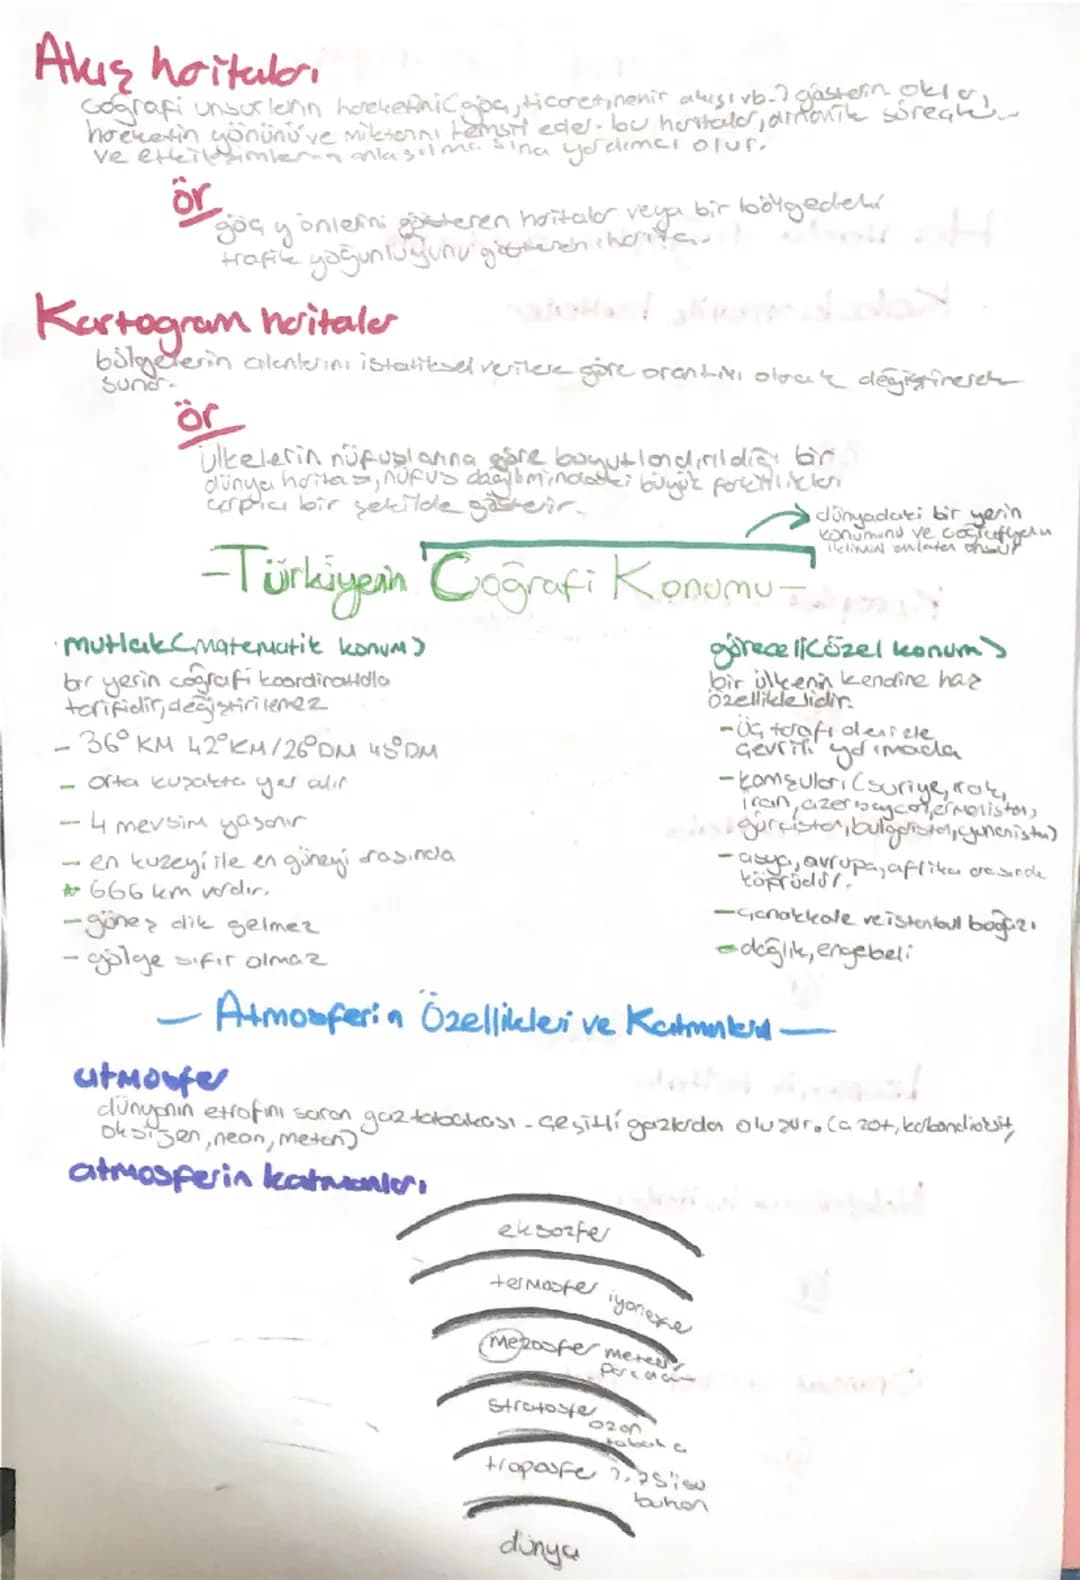 Akış haritaları
coğrafi unsurların hareketini(göç, ticaret, nehir akışı vb.) gösterir. oklar,
hareketin yönünü ve miktarını temsil eder. bu haritalar, dinamik süreçle
ve etkileşimlerin anlaşılmasına yardımcı olur.
ör
göç yönlerini gösteren haritalar veya bir bölgedeki
trafik yoğunluğunu gösteren harita.
Kartogram haritalar
bölgelerin alanlarını istatiksel verilere göre orantılı olarak değiştirerek
sunar.
ör
Ülkelerin nüfuslarına göre boyutlandırıldığı bir
dünya haritası, nüfus dağılımındaki büyük farklılıkları
çarpıcı bir şekilde gösterir.
dünyadaki bir yerin
konumunu ve coğrafyasını
iklimini anlatan unsur
-Türkiyenin Coğrafi Konumu-
mutlak(matematik konum)
bir yerin coğrafi koordinatlarla
tarifidir, değiştirilemez
- 36° KM 42°KM/26°DM 45°DM
- orta kuşakta yer alır
- 4 mevsim yaşanır
- en kuzeyi ile en güneyi arasında
666 km vardır.
- güneş dik gelmez
- gölge sıfır olmaz
göreceli(özel konum)
bir ülkenin kendine has
özellikleridir.
- üç tarafı denizle
çevrili yarımada
- komşuları (suriye, ırak,
iran, azerbaycan, ermenistan,
gürcistan, bulgaristan, yunanistan)
- asya, avrupa, afrika arasında
köprüdür.
- çanakkale ve istanbul boğazı
- dağlık, engebeli
- Atmosferin Özellikleri ve Katmanları -
atmosfer
dünyanın etrafını saran gaz tabakası. çeşitli gazlardan oluşur. (azot, karbondioksit,
oksijen, neon, metan)
atmosferin katmanları
eksozfer
termosfer iyonosfer
mezosfer meteor
parçaları
stratosfer ozon
tabaka
troposfer %75'i su
buharı
dünya